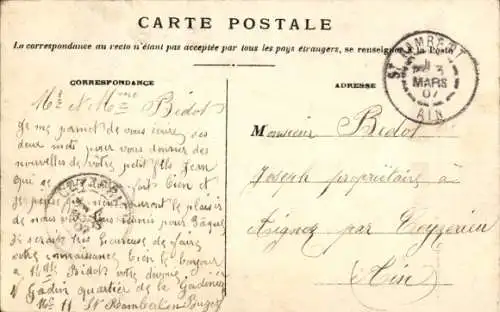 CARTE POSTALE
La correspondance au recto n'étant pas acceptée par tous les pays étrangers, se renseigner à la Poste
CORRESPONDANCE
ADRESSE
Mr et Mme Bidot
Je me permet de vous ces
deux mots pour vous donner des
nouvelles de votre petit fils Jean
qui se fait bien et
Je pense que nous auront le plaisir
de nous réunis pour Pâques
Je serais très heureuse de faire
votre connaissance bien le bonjour
à Mlle Bidot votre
Gadin quartier de la
No 11 St Rambert en Bugey
Monsieur Bidot
Joseph propriétaire à
Aignoz par Ceyzérieu
(Ain)
ST RAMBERT
3
MARS
07
AIN